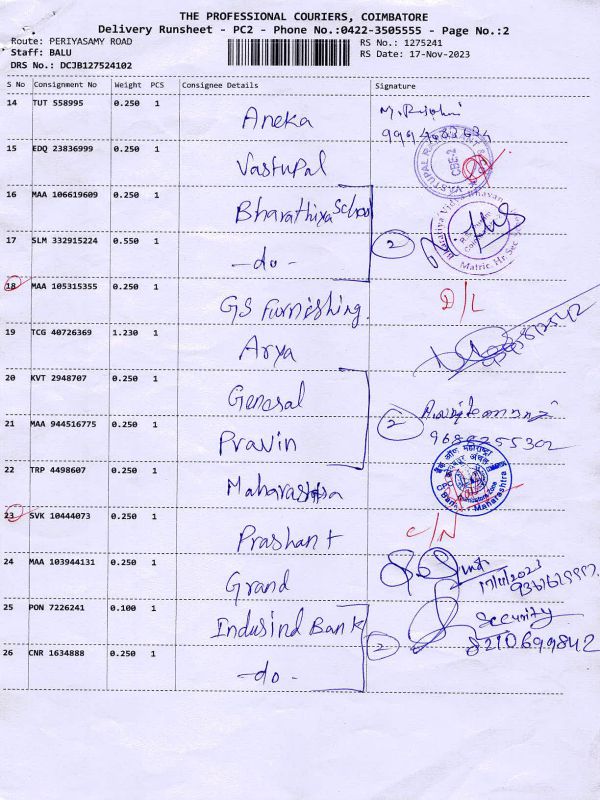 THE PROFESSIONAL COURIERS, COIMBATORE
Delivery Runsheet - PC2 - Phone No.:0422-3505555 - Page No.:2
Route: PERIYASAMY ROAD
RS No.: 1275241
Staff: BALU
RS Date: 17-Nov-2023
DRS No.: DCJB127524102
S No Consignment No Weight PCS Consignee Details Signature
14 TUT 558995 0.250 1 Aneka
15 EDQ 23836999 0.250 1 Vastupal
CBE-2
16 MAA 106619609 0.250 1 Bharathiya School
2
Matric Hr Sec
17 SLM 332915224 0.550 1 -do-
18 MAA 105315355 0.250 1 GS Furnishing. D/L
19 TCG 40726369 1.230 1 Arya
20 KVT 2948707 0.250 1 General
2
21 MAA 944516775 0.250 1 Pravin
22 TRP 4498607 0.250 1 Maharashtra
23 SVK 10444073 0.250 1 Prashant C/N
24 MAA 103944131 0.250 1 Grand
17/11/2023
25 PON 7226241 0.100 1 Indusind Bank Security
2 8210699842
26 CNR 1634888 0.250 1 -do-